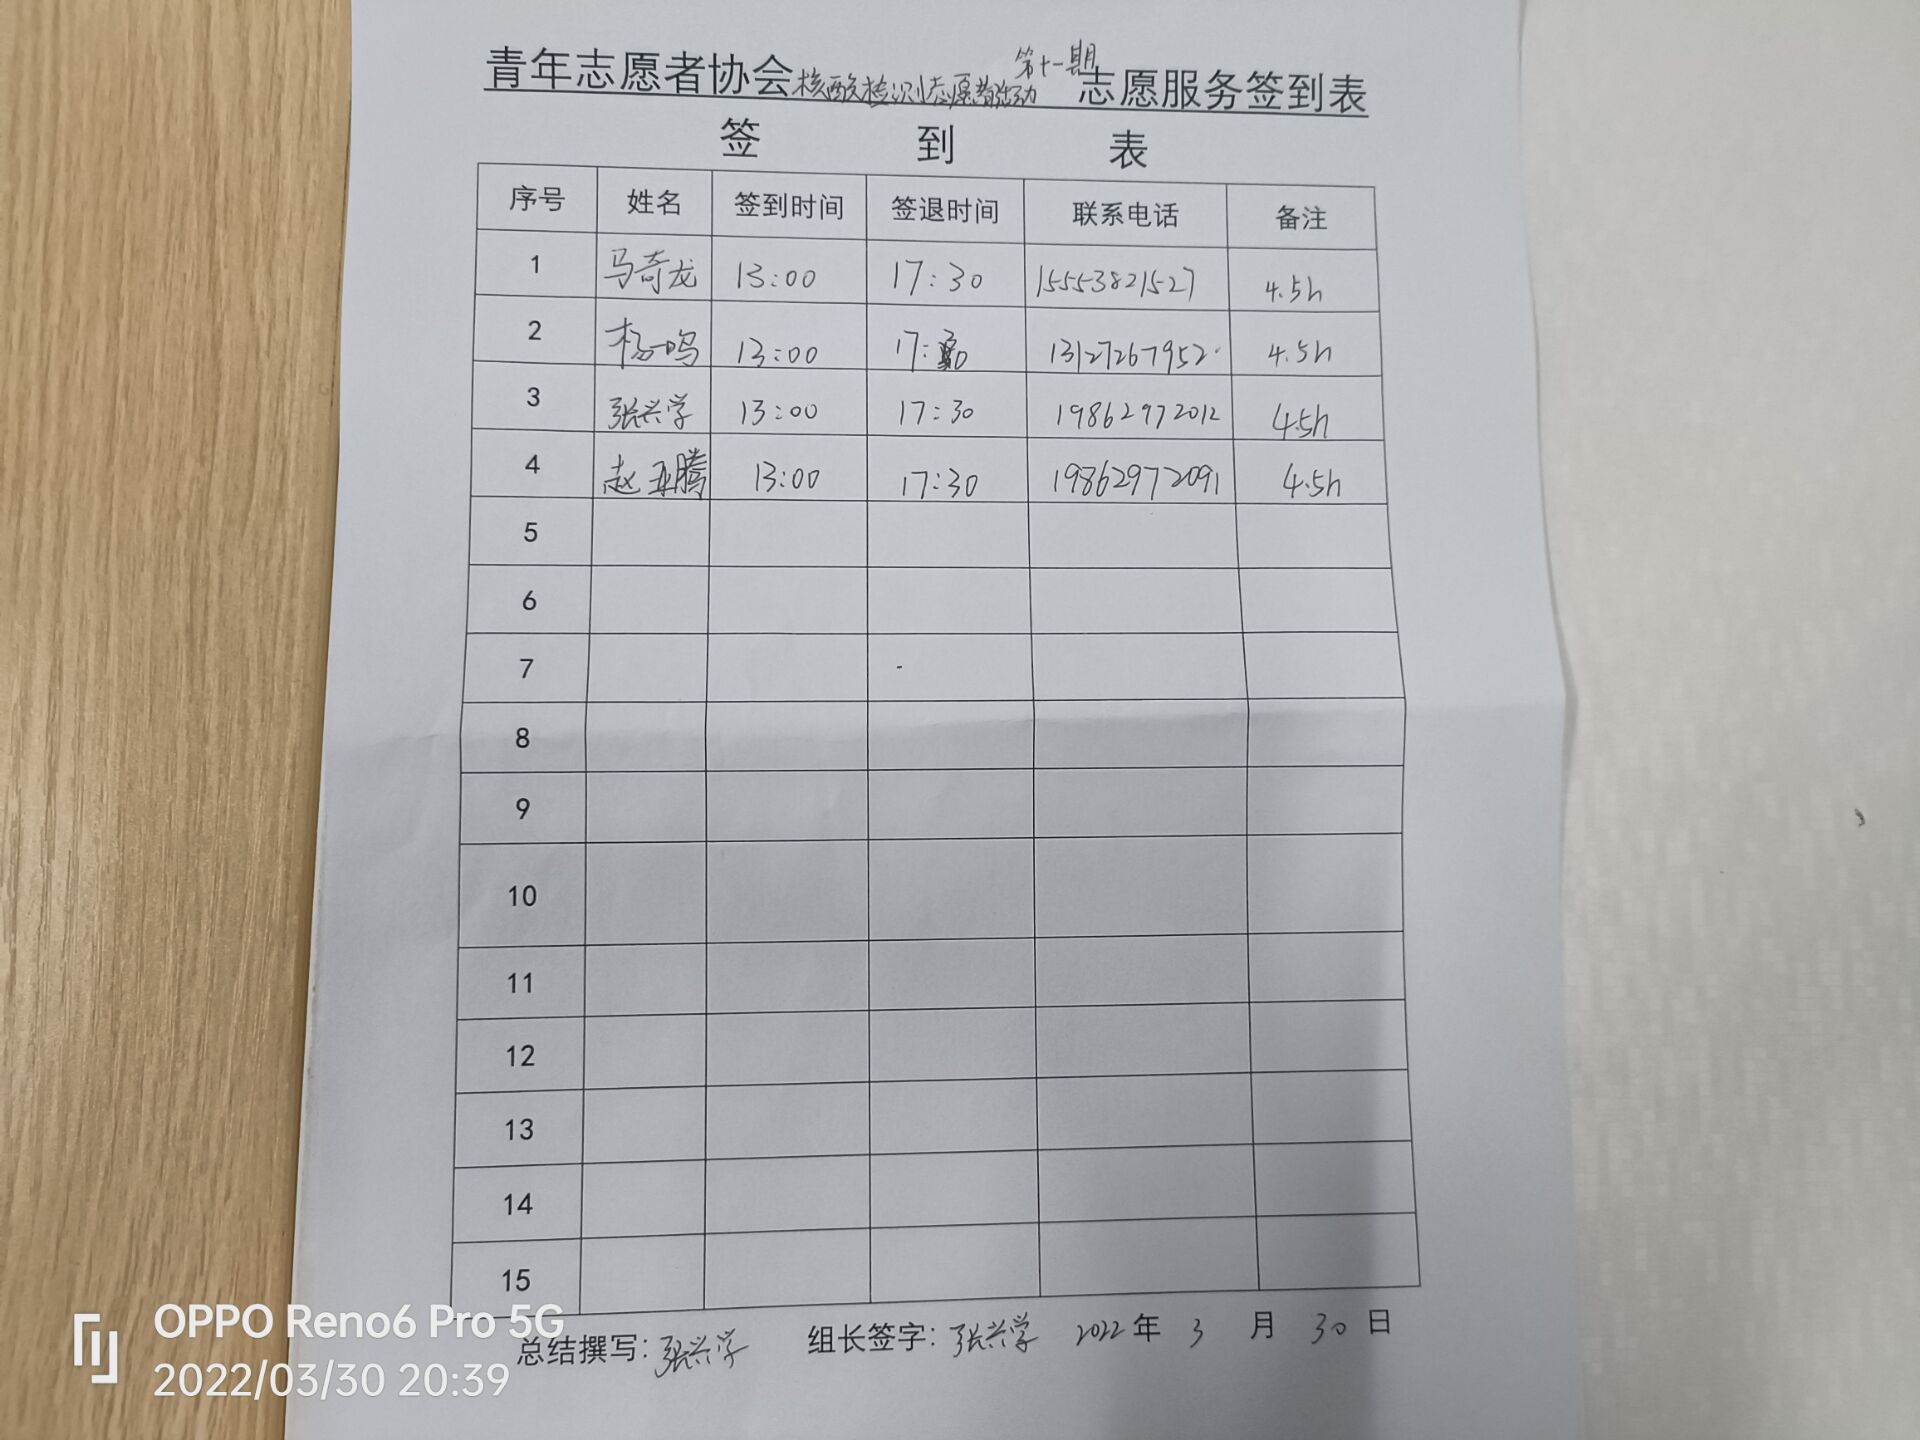 青年志愿者协会核酸检测志愿者活动第十一期志愿服务签到表
签 到 表
序号 姓名 签到时间 签退时间 联系电话 备注
1 马奇龙 13:00 17:30 15553821527 4.5h
2 杨一鸣 13:00 17:30 13127267952 4.5h
3 张兴学 13:00 17:30 19862972012 4.5h
4 赵亚腾 13:00 17:30 19862972091 4.5h
5
6
7
8
9
10
11
12
13
14
15
总结撰写：张兴学 组长签字：张兴学 2022年 3 月 30 日
OPPO Reno6 Pro 5G
2022/03/30 20:39